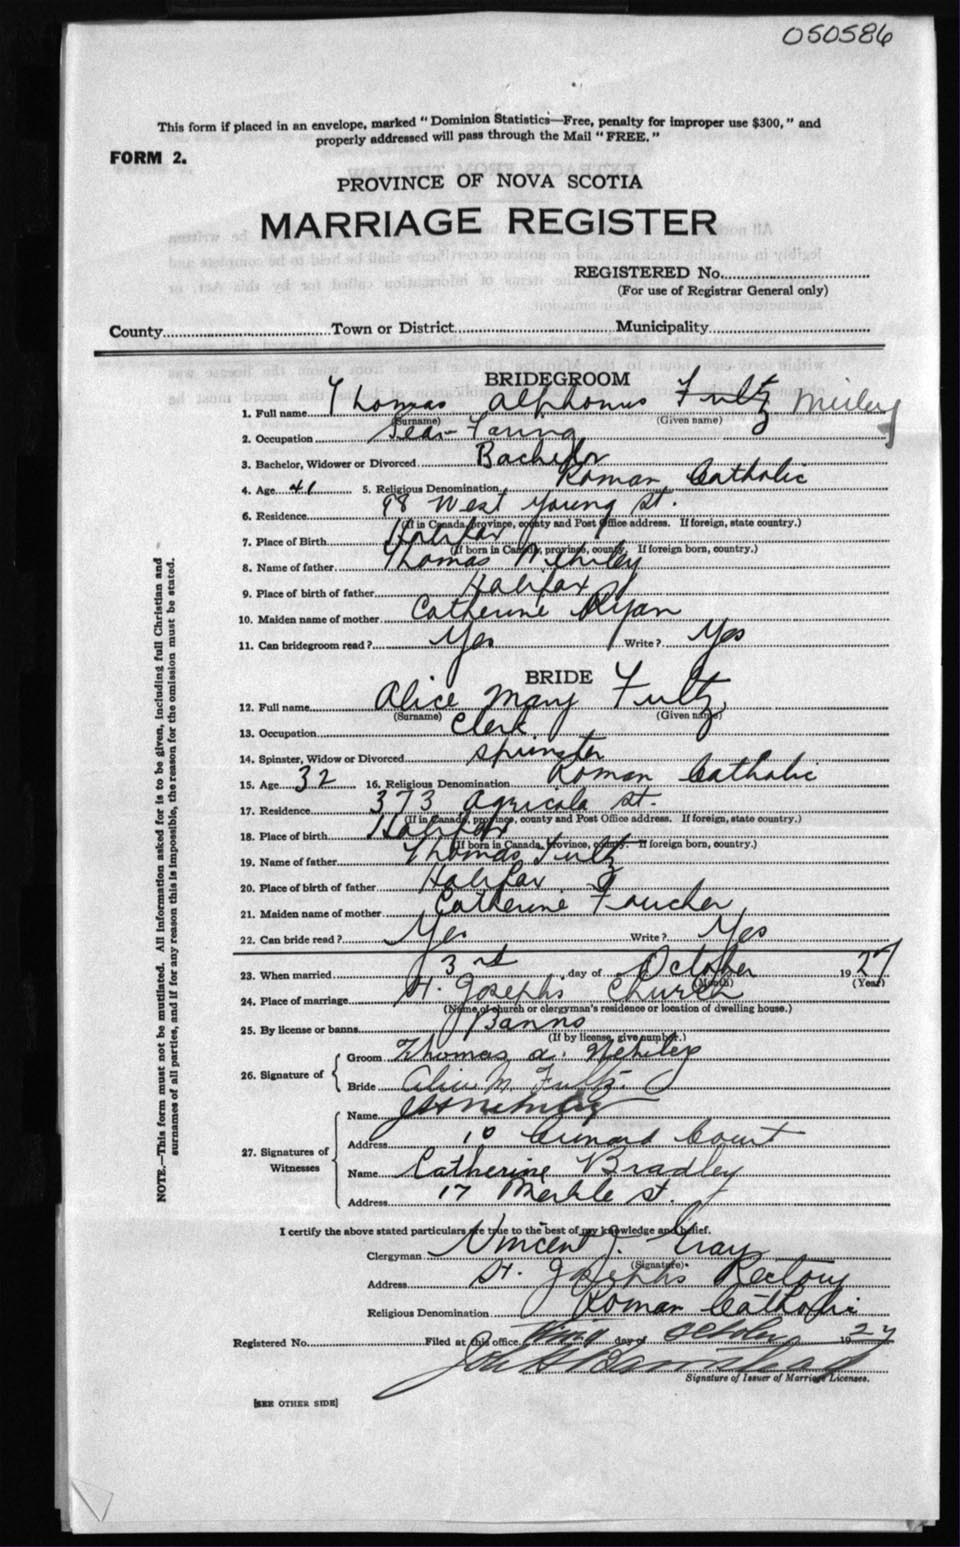 050586
This form if placed in an envelope, marked "Dominion Statistics—Free, penalty for improper use $300," and
properly addressed will pass through the Mail "FREE."
FORM 2.
PROVINCE OF NOVA SCOTIA
MARRIAGE REGISTER
REGISTERED No.
(For use of Registrar General only)
County Town or District Municipality
BRIDEGROOM
1. Full name Thomas Alphonus Fultz
(Surname) (Given name)
2. Occupation
3. Bachelor, Widower or Divorced Bachelor
4. Age 41 5. Religious Denomination Roman Catholic
6. Residence 98 West Young St.
(If in Canada, province, county and Post Office address. If foreign, state country.)
7. Place of Birth Halifax
(If born in Canada, province, county. If foreign born, country.)
8. Name of father Thomas
9. Place of birth of father Halifax
10. Maiden name of mother Catherine Ryan
11. Can bridegroom read? Yes Write? Yes
BRIDE
12. Full name Alice Mary Fultz
(Surname) (Given name)
13. Occupation Clerk
14. Spinster, Widow or Divorced Spinster
15. Age 32 16. Religious Denomination Roman Catholic
17. Residence 373 Agricola St.
(If in Canada, province, county and Post Office address. If foreign, state country.)
18. Place of birth Halifax
(If born in Canada, province, county. If foreign born, country.)
19. Name of father Thomas Fultz
20. Place of birth of father Halifax
21. Maiden name of mother Catherine Faucher
22. Can bride read? Yes Write? Yes
23. When married 3rd day of October 1927
(Month) (Year)
24. Place of marriage St. Josephs Church
(Name of church or clergyman's residence or location of dwelling house.)
25. By license or banns Banns
(If by license, give number.)
26. Signature of Groom Thomas A.
Bride Alice M. Fultz
27. Signatures of Witnesses Name
Address 10 Court
Name Catherine Bradley
Address 17 St.
I certify the above stated particulars are true to the best of my knowledge and belief.
Clergyman Vincent J. Gray
(Signature)
Address St. Josephs Rectory
Religious Denomination Roman Catholic
Registered No. Filed at this office day of October 1927
Signature of Issuer of Marriage Licenses.
[SEE OTHER SIDE]
NOTE.—This form must not be mutilated. All information asked for is to be given, including full Christian and
surnames of all parties, and if for any reason this is impossible, the reason for the omission must be stated.